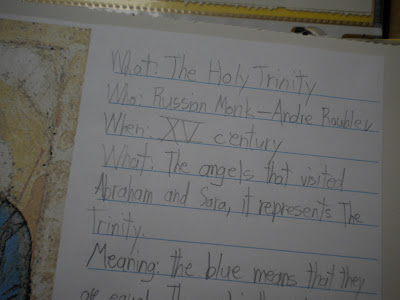 What: The Holy Trinity
Who: Russian Monk-Andre Roublev
When: XV century
What: The angels that visited
Abraham and Sara, it represents The
Trinity.
Meaning: the blue means that they
are equal. The